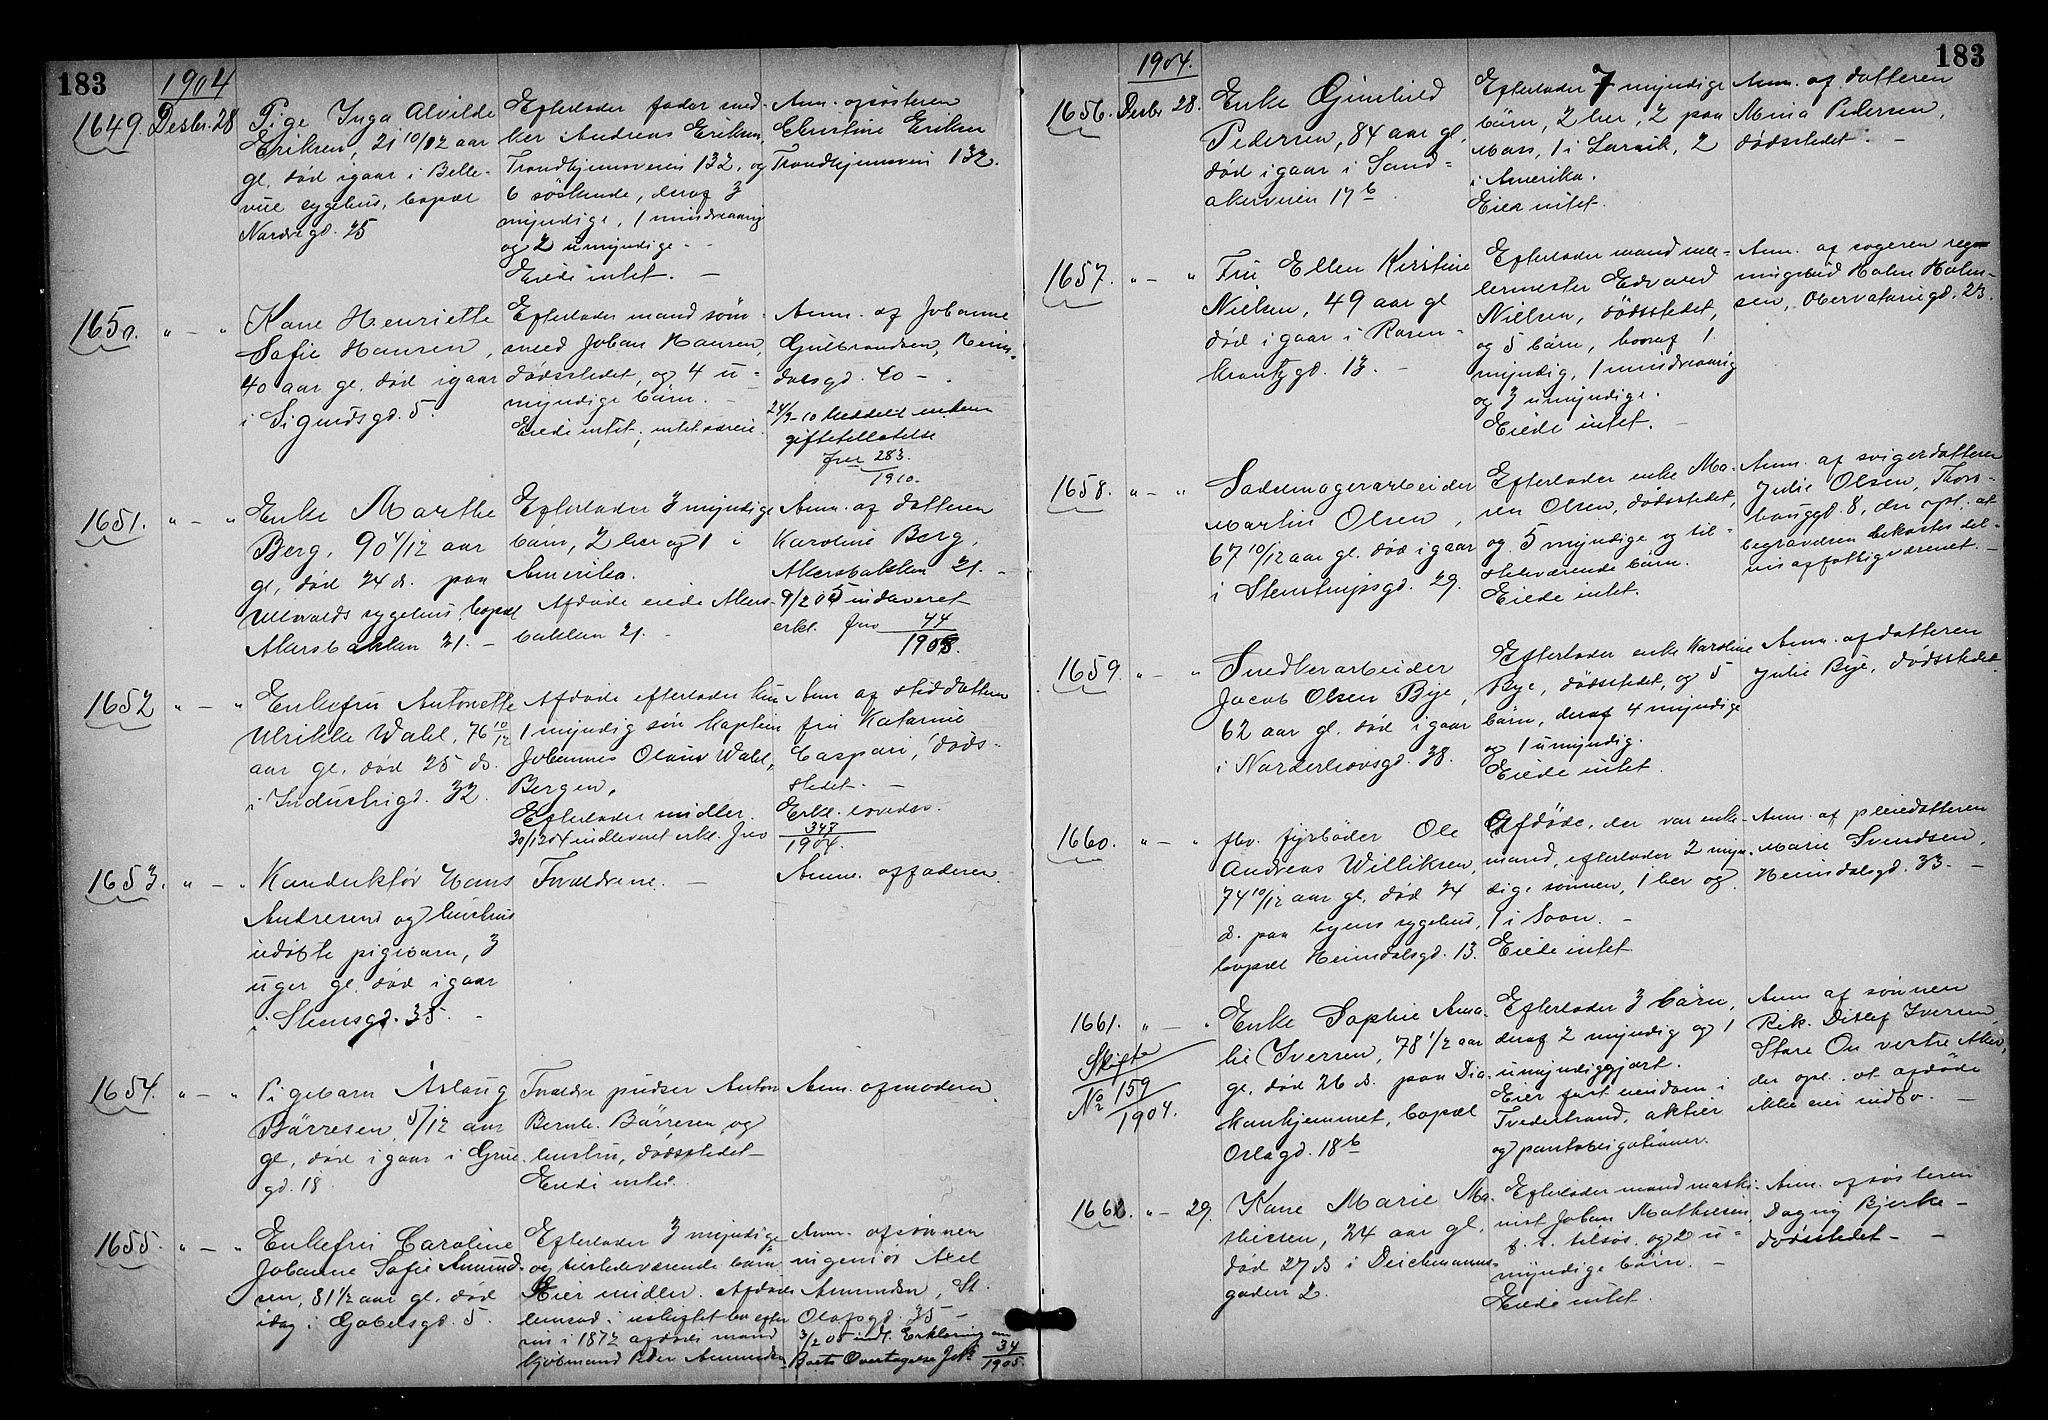 183
1904
1649. Desbr. 28
Pige Inga Alvilde
Eriksen, 21 10/12 aar
gl. død igaar i Belle-
vue sygehus, bopæl
Nordregd. 25
Efterlader fader sned-
ker Andreas Eriksen,
Trondhjemsveien 132, og
6 søskende, deraf 3
myndige, 1 mindreaarig
og 2 umyndige.
Eiede intet.
Anm. af søsteren
Christine Eriksen
Trondhjemsvei 132.
1650. " - "
Kone Henriette
Sofie Hansen,
40 aar gl. død igaar
i Sigurdsgd. 5.
Efterlader mand
smed Johan Hansen,
dødsstedet, og 4 u-
myndige børn.
Eiede intet, intet særeie.
Anm. af Johanne
Gulbrandsen, Heim-
dalsgd. 40
24/9-10 meddelt enkem
giftetilladelse
283.
1910.
1651. " - "
Enke Marthe
Berg, 90 4/12 aar
gl. død 24 ds. paa
Ullevolds sygehus, bopæl
Akersbakken 21.
Efterlader 3 myndige
børn, 2 her og 1 i
Amerika.
Afdøde eiede Akers-
bakken 21.
Anm. af datteren
Karoline Berg,
Akersbakken 21.
9/2 05 indleveret
erkl. jno 44
1905.
1652 " - "
Enkefru Antonette
Ulrikke Wahl, 76 10/12
aar gl. død 25 ds.
i Industrigd. 32.
Afdøde efterlader kun
1 myndig søn kaptein
Johannes Olaus Wahl,
Bergen.
Efterlader midler.
30/12 04 indleveret erkl. jno
Anm af stiddatteren
fru Katarine
Caspari, døds-
stedet.
347
1904.
1653. " - "
Konduktør Hans
Andresens og hustrus
udøbte pigebarn, 3
uger gl. død igaar
i Stensgd. 35.
Forældrene.
Anm. af faderen.
1654. " - "
Pigebarn Aslaug
Børresen, 5/12 aar
gl. død igaar i Grue-
gd. 18
Forældre pudser Anton
Bernh. Børresen og
hustru, dødsstedet
Eiede intet.
Anm. af moderen.
1655. " - "
Enkefru Caroline
Johanne Sofie Amund-
sen, 81 1/2 aar gl. død
idag i Gabelsgd. 5.
Efterlader 3 myndige
og tilstedeværende børn
Eier midler. Afdøde
hensad i uskiftet bo efter
sin i 1872 afdøde mand
kjøbmand Peder Amundsen
Anm. af sønnen
ingeniør Axel
Amundsen, St.
Olafsgd. 35
3/2 05 indl. Erklæring om
Boets Overtagelse J.No 34
1905.
183
1904.
1656. Desbr 28.
Enke Gunhild
Pedersen, 84 aar gl.
død igaar i Sand-
akerveien 17b
Efterlader 7 myndige
børn, 2 her, 2 paa
Moss, 1 i Larvik, 2
i Amerika.
Eier intet.
Anm. af datteren
Mina Pedersen,
dødsstedet.
1657. " - "
Fru Ellen Kirstine
Nielsen, 49 aar gl
død igaar i Rosen-
krantzgd. 13.
Efterlader mand ma-
lermester Edvard
Nielsen, dødsstedet,
og 5 børn, hvoraf 1
myndig, 1 mindreaarig
og 3 umyndige.
Eiede intet.
Anm. af svogeren
Holm Holm-
sen, Observatoriegd. 23.
1658. " - "
Sadelmagerarbeider
Martin Olsen,
67 10/12 aar gl. død igaar
i Stenstrupsgd. 29.
Efterlader enke Ma-
ren Olsen, dødsstedet,
og 5 myndige og til-
stedeværende børn.
Eiede intet.
Anm. af svigerdatteren
Julie Olsen, Thors-
haugd. 8, der opl. at
begravelsen bekostes del-
vis af fattigvæsenet.
1659. " - "
Snedkerarbeider
Jacob Olsen Bye,
62 aar gl. død igaar
i Norderhovsgd. 38.
Efterlader enke Karoline
Bye, dødsstedet, og 5
børn, deraf 4 myndige
og 1 umyndig.
Eiede intet.
Anm. af datteren
Julie Bye, dødsstedet
1660. " - "
fhv. fyrbøder Ole
Andreas Williksen,
74 10/12 aar gl. død 24
ds. paa byens sygehus,
bopæl Heimdalsgd. 13.
Afdøde, der var enke-
mand, efterlader 2 myn-
dige sønner, 1 her og
1 i Soon.
Eiede intet
Anm. af pleiedatteren
Marie Svendsen,
Heimdalsgd. 33.
1661. " - "
Skifte
No 159
1904.
Enke Sophie Ama-
lie Iversen, 78 1/2 aar
gl. død 26 ds. paa Dia-
konhjemmet, bopæl
Oslogd. 18b
Efterlader 3 børn,
deraf 2 myndig og 1
umyndiggjort.
Eier fast eiendom i
Tvedestrand, aktier
og pantobligationer.
Anm af sønnen
Ditlef Iversen,
Store On vestre Aker,
der opl. at afdøde
ikke eier indbo.
1662. " - 29.
Kone Marie Ma-
thiesen, 24 aar gl.
død 27 ds i Deichmanns-
gaden 2.
Efterlader mand maski-
nist Johan Mathiesen,
f. t. tilsøs, og 2 u-
myndige børn.
Eiede intet.
Anm. af søsteren
Dagny Bjerke
dødsstedet